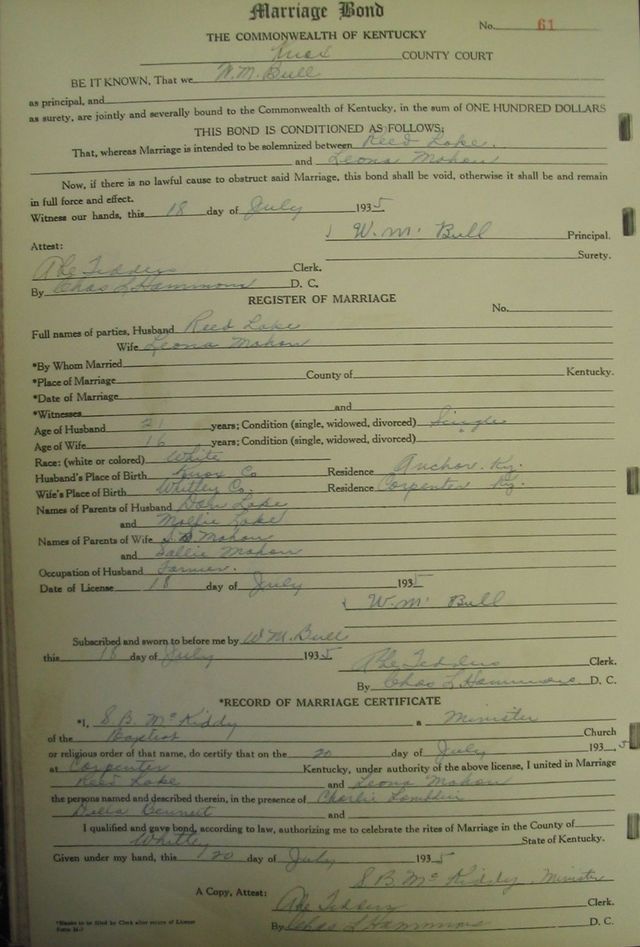 Marriage Bond
No. 61
THE COMMONWEALTH OF KENTUCKY
Knox COUNTY COURT
BE IT KNOWN, That we W. M. Bull
as principal, and
as surety, are jointly and severally bound to the Commonwealth of Kentucky, in the sum of ONE HUNDRED DOLLARS
THIS BOND IS CONDITIONED AS FOLLOWS:
That, whereas Marriage is intended to be solemnized between Reed Lake.
and Leona Mahon
Now, if there is no lawful cause to obstruct said Marriage, this bond shall be void, otherwise it shall be and remain
in full force and effect.
Witness our hands, this 18 day of July 1935
W. M. Bull Principal.
Surety.
Attest:
Abe Tedders Clerk.
By Chas L Hammons D. C.
REGISTER OF MARRIAGE
No.
Full names of parties, Husband Reed Lake
Wife Leona Mahon
*By Whom Married
*Place of Marriage County of Kentucky.
*Date of Marriage
*Witnesses and
Age of Husband 21 years; Condition (single, widowed, divorced) Single
Age of Wife 16 years; Condition (single, widowed, divorced)
Race: (white or colored) White
Husband's Place of Birth Knox Co Residence Anchor. Ky.
Wife's Place of Birth Whitley Co. Residence Carpenter Ky.
Names of Parents of Husband Lake
and Mollie Lake
Names of Parents of Wife S. B Mahon
and Sallie Mahon
Occupation of Husband Farmer.
Date of License 18 day of July 1935
W. M. Bull
Subscribed and sworn to before me by W M. Bull
this 18 day of July 1935.
Abe Tedders Clerk.
By Chas L Hammons D. C.
*RECORD OF MARRIAGE CERTIFICATE
*I, S. B. McKiddy a Minister
of the Baptist Church
or religious order of that name, do certify that on the 20 day of July 1935
at Carpenter Kentucky, under authority of the above license, I united in Marriage
Reed Lake and Leona Mahon
the persons named and described therein, in the presence of Charlie
Bennett and
I qualified and gave bond, according to law, authorizing me to celebrate the rites of Marriage in the County of
Whitley State of Kentucky.
Given under my hand, this 20 day of July 1935
S. B. McKiddy, Minister
A Copy, Attest: Abe Tedders Clerk.
By Chas L Hammons D. C.
*Blanks to be filled by Clerk after return of License